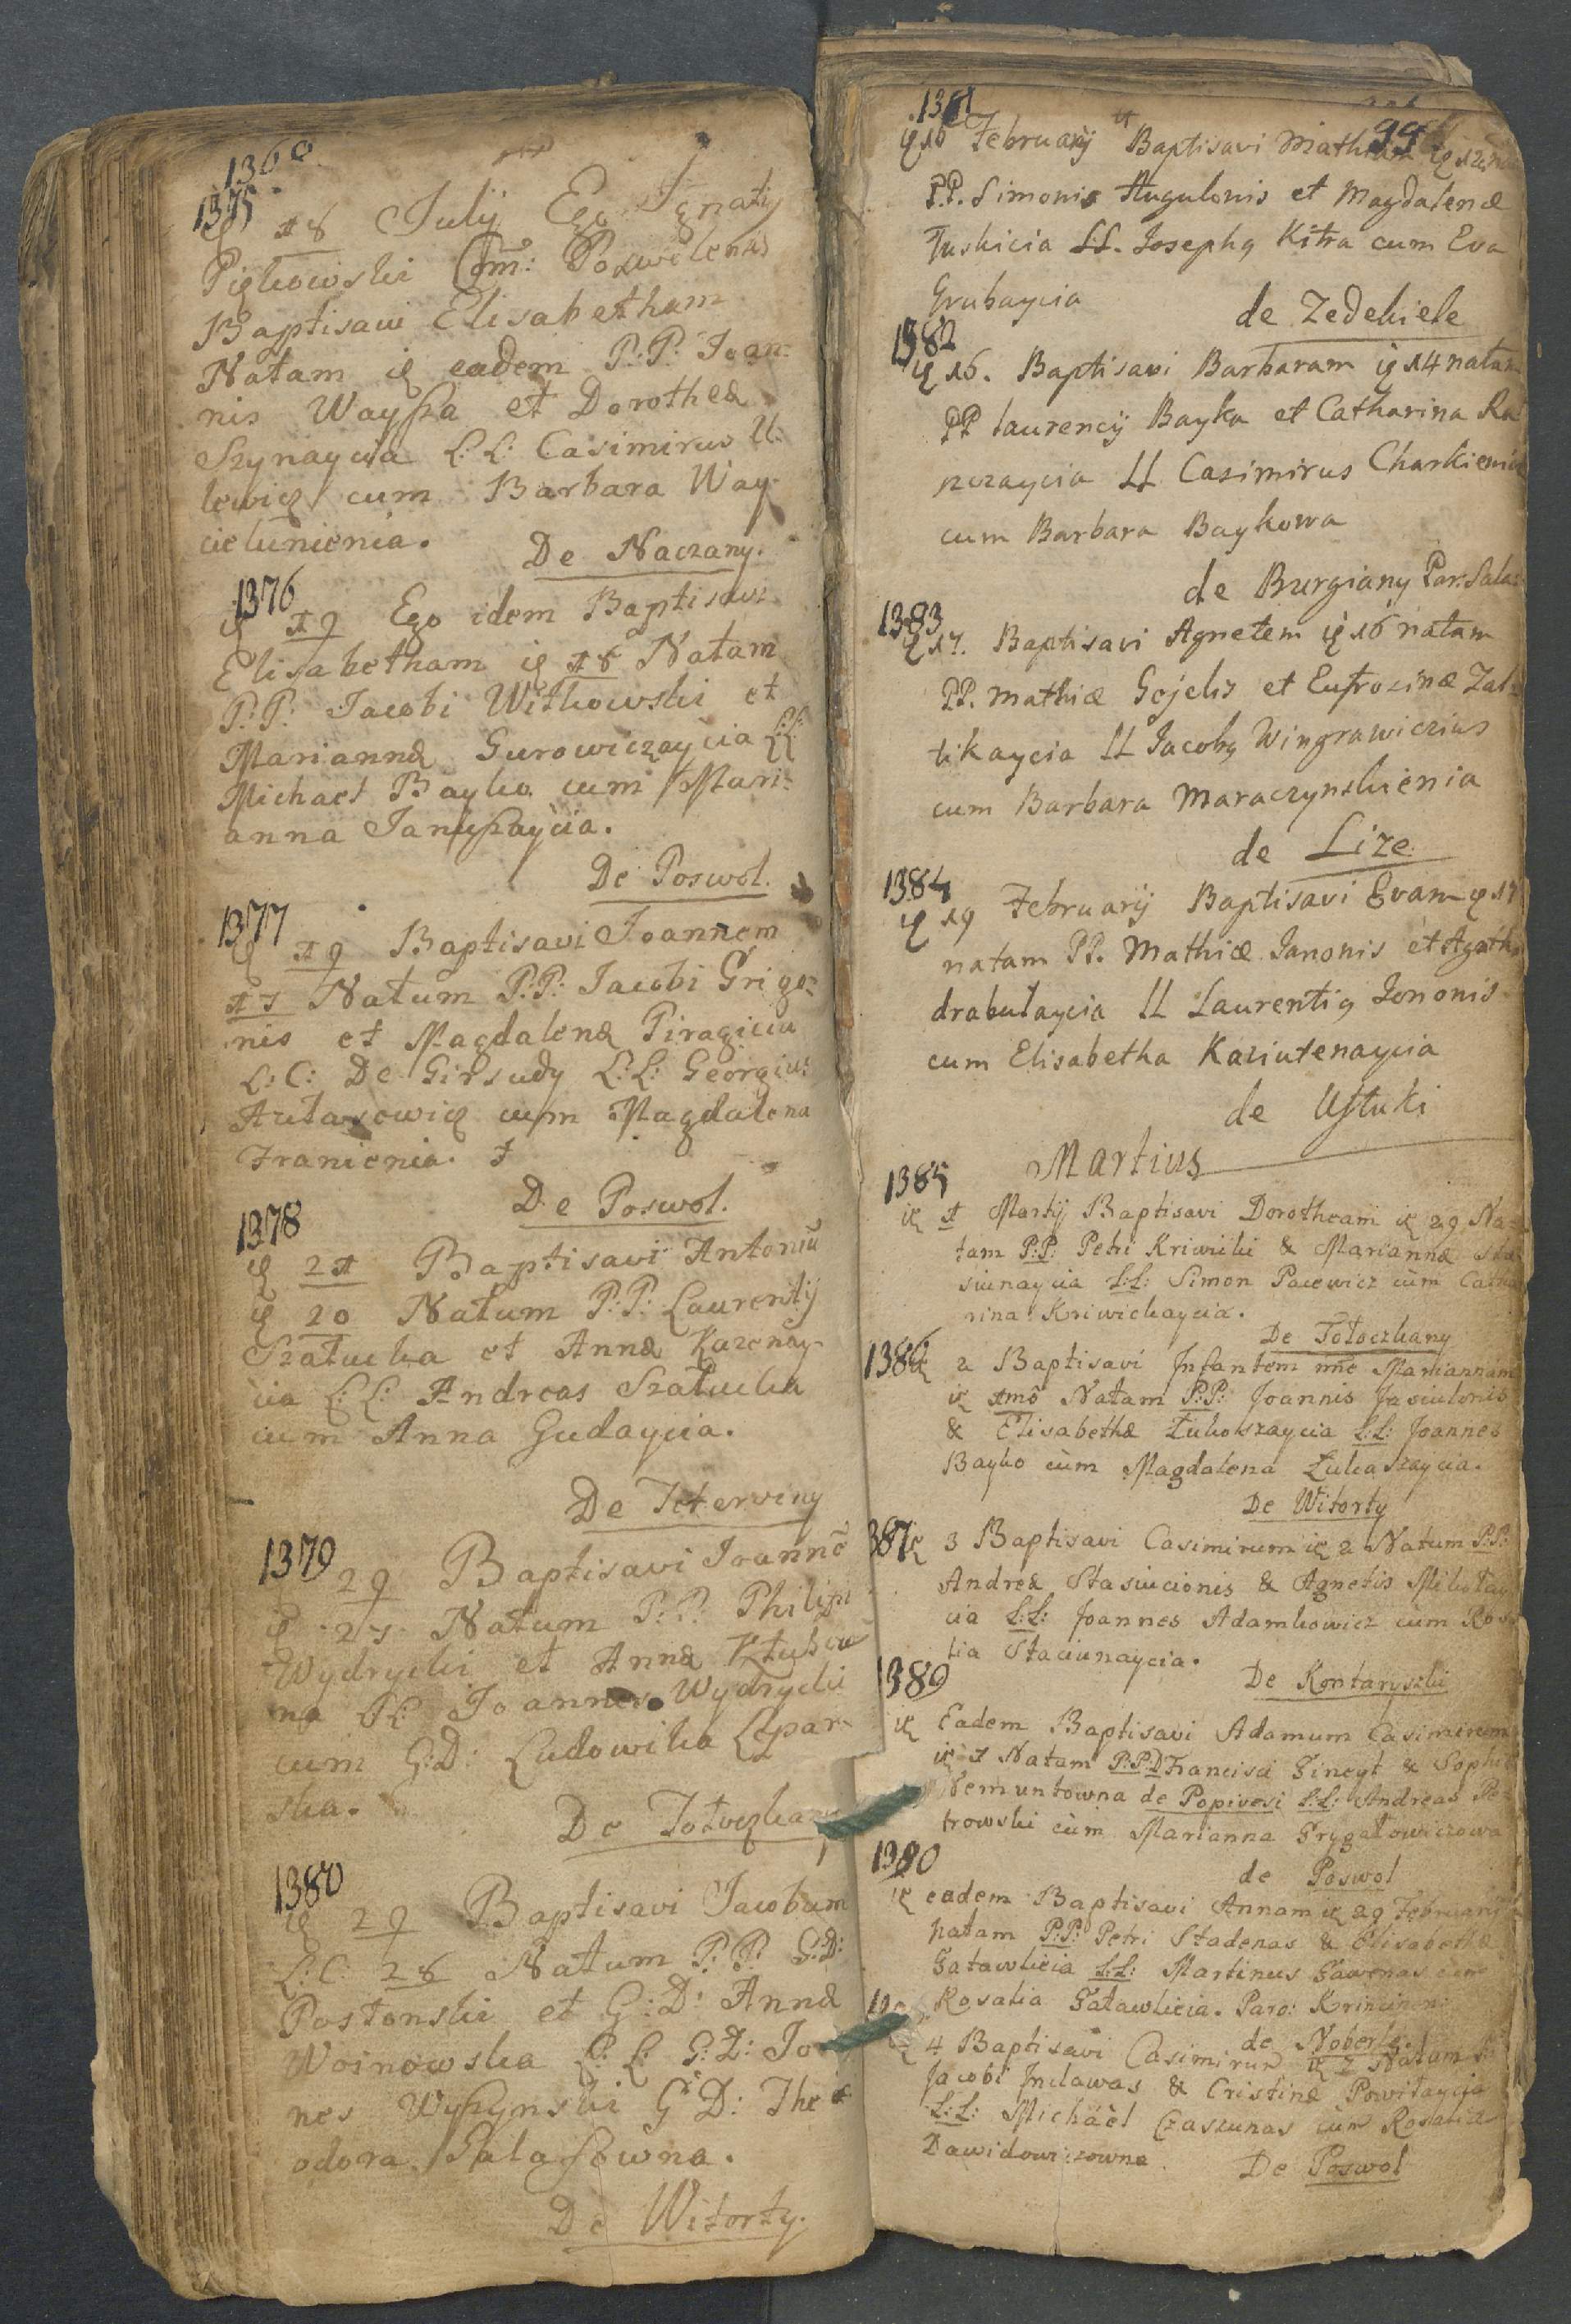 1360
1375
18 July Ego Ignatij
Pigłowski Com: Poswolensis
Baptisavi Elisabetham
Natam eadem P:P: Joan-
nis Wayßa et Dorotheæ
Szynaycia L:L: Casimirus U-
lewicz cum Barbara Way-
ciełunienia.
De Naczany.
1376
19 Ego idem Baptisavi
Elisabetham 18 Natam
P:P: Jacobi Witkowski et
Mariannæ Gurowiczaycia L:L:
Michael Bayko cum Mari-
anna Janußaycia.
De Poswol.
1377
19 Baptisavi Joannem
17 Natum P:P: Jacobi Grigo-
nis et Magdalenæ Piragicia
L:C: De Girsudy L:L: Georgius
Autasewicz cum Magdalena
Franienia.
De Poswol.
1378
21 Baptisavi Antoniũ
20 Natum P:P: Laurentij
Szatucka et Annæ Kuzenay-
cia L:L: Andreas Szatucka
cum Anna Gudaycia.
De Teterviny
1379
29 Baptisavi Joannẽ
27 Natum P:P: Philipi
Wydrycki et Annæ
na L:L: Joannes Wydrycki
cum G:D: Ludowika
ska.
De Totoczkany
1380
29 Baptisavi Jacobum
L:C: 28 Natum P:P: G:D:
Postonski et G:D: Annæ
Woinowska L:L: G:D: Jo
nes Wyßynski G:D: The
odora Pałaßowna.
De Witorty.
1381
99
16 February Baptisavi Mathiam
P.P. Simonis Augulonis et Magdalenæ
Tuskicia LL. Josephq Kitra cum Eva
Grubaycia
de Zedekiele
1382
16. Baptisavi Barbaram 14 natam
PP Laurencij Bayka et Catharina Ra-
pczaycia LL Casimirus Charkiewic
cum Barbara Baykowa
de Burgiany Par: Salat
1383
17. Baptisavi Agnetem 16 natam
PP. Mathiæ Gejelis et Eufrozinæ Zal-
tikaycia LL Jacobq Wingrawiczius
cum Barbara Maraczynskienia
de Lize
1384
19 February Baptisavi Evam 17
natam PP. Mathiæ Janonis et Agathæ
drabutaycia LL Laurentiq Jononis
cum Elisabetha Kaziutenaycia
de Ustuki
Martius
1385
1 Martij Baptisavi Dorotheam 29 Na-
tam P:P: Petri Kriwicki & Mariannæ Sta-
siunaycia L:L: Simon Pacewicz cùm Catha
rina Kriwickaycia.
De Totoczkany
1386
2 Baptisavi Infantem nñe Mariannam
1mô Natam P:P: Joannis Jasiulonis
& Elisabethæ Łukoszaycia L:L: Joannes
Bayko cùm Magdalena Łukaszaycia.
De Witorty
387
3 Baptisavi Casimirum 2 Natum P:P:
Andreæ Stasiucionis & Agnetis Mikołay
cia L:L: Joannes Adamkowicz cùm Rosa
lia Staciunaycia.
De Kontaryszki
1389
Eadem Baptisavi Adamum Casimirum
1 Natam P:P:D Francisci Gineyt & Sophiæ
Nemuntowna de Popiwesi L:L: Andreas Pe-
trowski cùm Marianna Grygałowiczowa
de Poswol
1390
eadem Baptisavi Annam 29 February
natam P:P: Petri Stadenas & Elisabethæ
Gatawlicia L:L: Martinus Gawenas cùm
Rosalia Gatawlicia. Paro: Krincinen:
de Noberle.
4 Baptisavi Casimirum 2 Natum
Jacobi Inclawas & Cristinæ Powiłaycia
L:L: Michaël Czaszunas cùm Rosalia
Dawidowiczowna
De Poswol